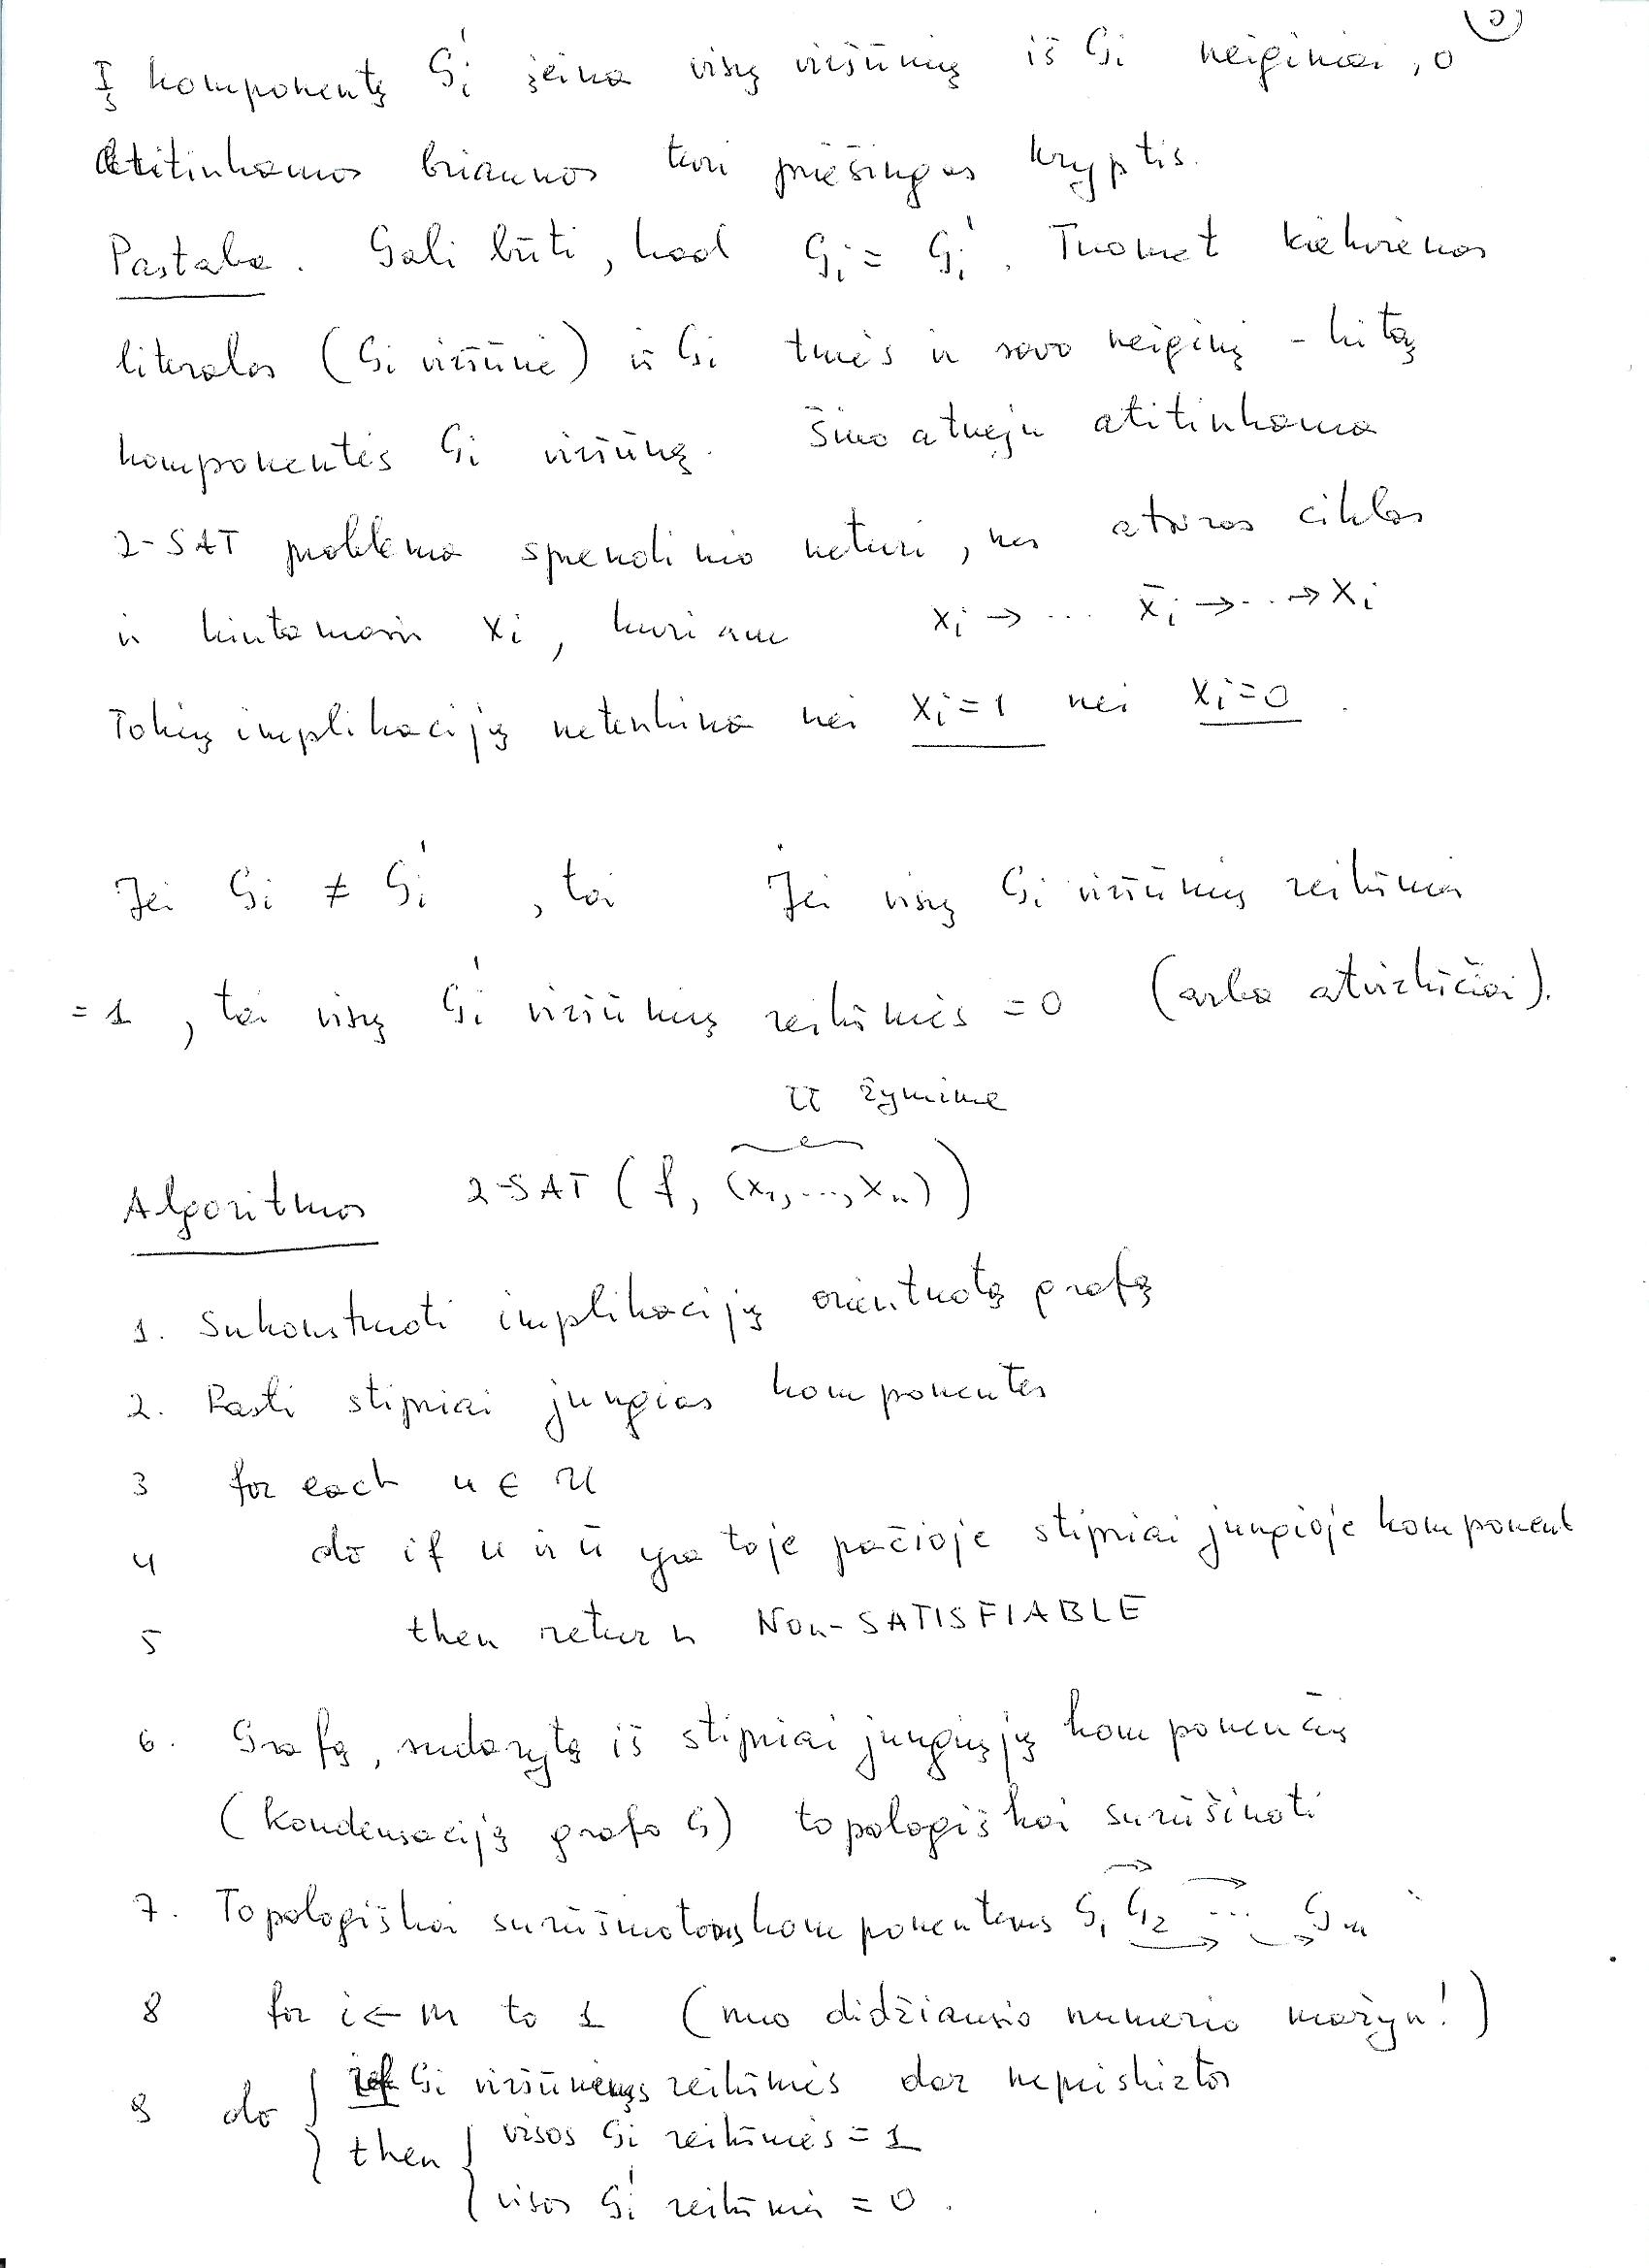 Į komponentę Gi' įeina visų viršūnių iš Gi neiginiai, o
atitinkamos briaunos turi priešingas kryptis.
Pastaba. Gali būti, kad Gi = Gi'. Tuomet kiekvienas
literalas (Gi viršūnė) iš Gi turės ir savo neiginį - kitą
komponentės Gi viršūnę. Šiuo atveju atitinkama
2-SAT problema sprendinio neturi, nes atsiras ciklas
ir kintamasis xi, kuriam xi → ... x̄i → ... → xi
Tokių implikacijų netenkina nei xi=1 nei xi=0.
Jei Gi ≠ Gi', tai Jei visų Gi viršūnių reikšmės
= 1, tai visų Gi' viršūnių reikšmės = 0 (arba atvirkščiai).
U žymime
Algoritmas 2-SAT (f, (x1, ..., xn))
1. Sukonstruoti implikacijų orientuotą grafą
2. Rasti stipriai jungias komponentes
3 for each u ∈ U
4 do if u ir ū yra toje pačioje stipriai jungioje komponent
5 then return Non-SATISFIABLE
6. Grafą, sudarytą iš stipriai jungiųjų komponenčių
(Kondensaciją grafo G) topologiškai surūšiuoti
7. Topologiškai surūšiuotoms komponentėms G1 G2 ... Gm :
8 for i ← m to 1 (nuo didžiausio numerio mažyn!)
9 do { if Gi viršūnių reikšmės dar nepriskirtos
then { visos Gi reikšmės = 1
visos Gi' reikšmės = 0.